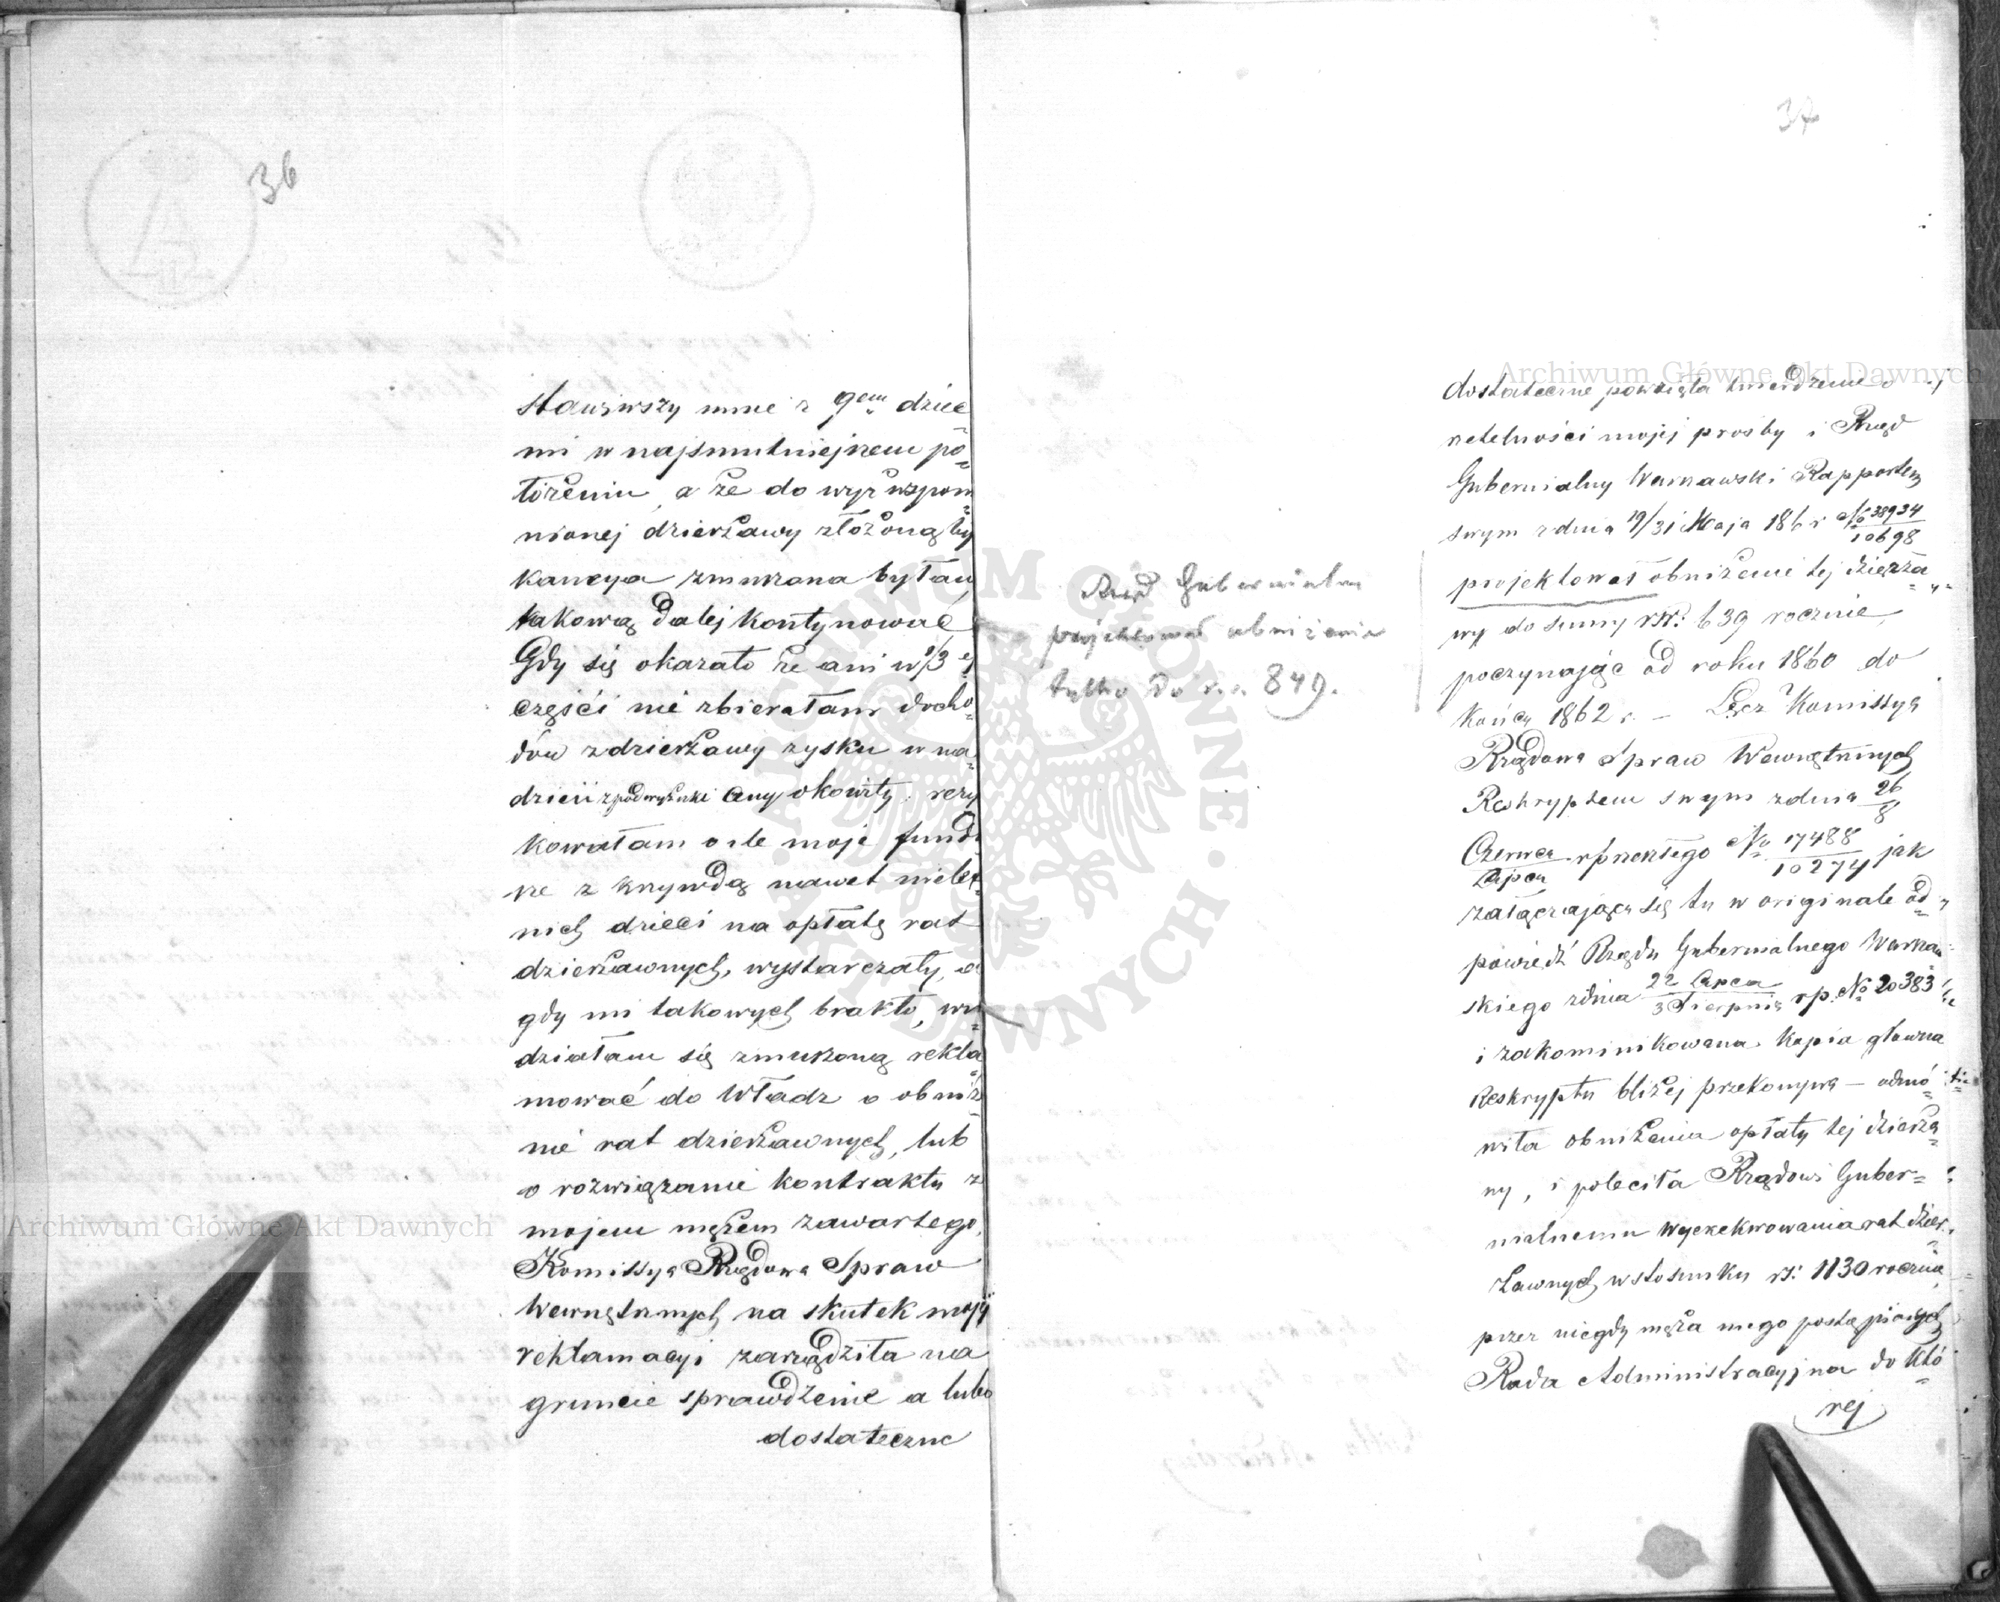 36
stawiwszy mnie z 9em dzieć
mi w najsmutniejszem po=
łożeniu, a że do wyż wspom=
nionej dzierżawy złożoną by
kaucya zmuszona byłam
takową dalej kontynować
Gdy się okazało że ani w 1/3 ej
części nie zbierałam docho=
dów z dzierżawy zysku w na=
dzieii z podwyżski ceny okowity rezy
kowałam o ile moje fundu
sze z krzywdą nawet nielet=
nich dzieci na opłatę rat
dzierżawnych, wystarczały, a
gdy mi takowych brakło, wi=
działam się zmuszoną rekla
mować do Władz o obniż=
nié rat dzierżawnych, lub
o rozwiązanie kontraktu z
mojem mężem zawartego.
Komissya Rządowa Spraw
Wewnętrznych na skutek mojéj
reklamacyi zarządziła na
gruncie sprawdzenie a lubo
dostateczne
37
dostateczne powzięła twierdzenie o
rzetelności mojej prośby i Rząd
Gubernialny Warszawski Rapportem
swym z dnia 19/31 Maja 186 r № 38934/10698
projektował obniżenie tej dzierża=
wy do summy rsr: 639 rocznie,
poczynając od roku 1860 do
końca 1862 r. – Lecz Komissya
Rządowa Spraw Wewnętrznych
Reskryptem swym z dnia 26/8
Czerwca/Lipca r/ przeszłego № 17488/10274 jak
załączająca się tu w originale od=
powiedź Rządu Gubernialnego Warszaw=
skiego z dnia 22 Lipca/3 Sierpnia r p. № 20383
i zakominikowana kopia główna
Reskryptu bliżej przekonywa – odmó=
wiła obniżenia opłaty tej dzierża=
ny, i poleciła Rządowi Guber=
nialnemu wyexekwowania rat dzier=
żawnych w stosunku rs: 1130 rocznie,
przez niegdy męża mego postąpionych
Rada Administracyjna do któ=
rej
Rząd Gubernialny
projektował obniżenie
tylko do rs. 849.
Archiwum Główne Akt Dawnych
Archiwum Główne Akt Dawnych
ARCHIWUM GŁÓWNE AKT DAWNYCH